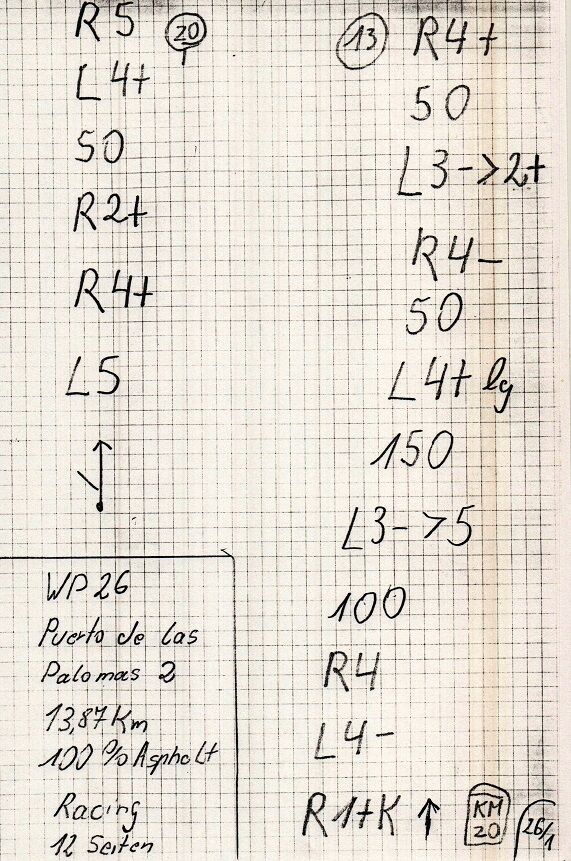 R5 20
L4+
50
R2+
R4+
L5
WP26
Puerto de las
Palomas 2
13,87 Km
100% Asphalt
Racing
12 Seiten
13 R4+
50
L3->2+
R4-
50
L4+ lg
150
L3->5
100
R4
L4-
R1+K ↑ KM 20 26/1